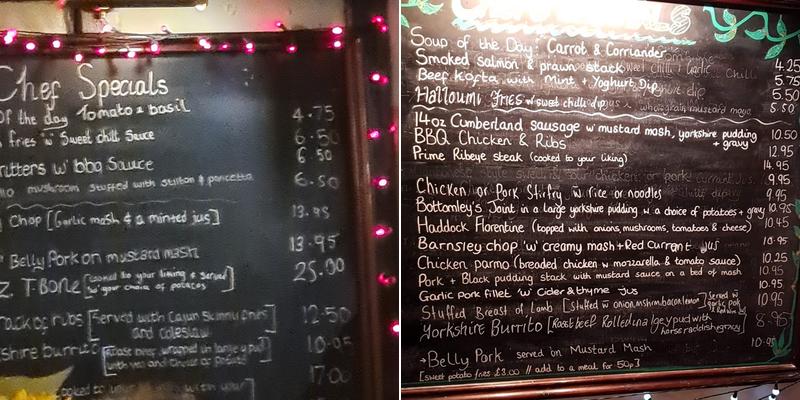 Chef Specials
of the day Tomato & basil 4.75
fries w Sweet chill Sauce 6.50
ritters w' bbq Sauce 6.50
mushroom stuffed with stilton & pancetta 6.50
Chop [Garlic mash & a minted jus] 13.95
Belly Pork on mustard mash 13.95
Z. T.BONE [cooked to your liking & served w your choice of potatoes] 25.00
rack of ribs [Served with Cajun Skinny fries and coleslaw] 12.50
shire burrito 10.95
17.00
Soup of the Day: Carrot & Corriander 4.25
Smoked salmon & prawn stack 5.75
Beef Kofta with Mint + Yoghurt Dip 5.50
Halloumi Fries w sweet chilli dip 5.50
14oz Cumberland sausage w mustard mash, yorkshire pudding + gravy 10.50
BBQ Chicken & Ribs 12.95
Prime Ribeye steak (cooked to your liking) 14.95
Chicken or Pork Stirfry w rice or noodles 9.95
Bottomley's Joint in a large yorkshire pudding w a choice of potatoes + gravy 10.95
Haddock Florentine (topped with onions, mushrooms, tomatoes & cheese) 10.45
Barnsley chop 'w' creamy mash + Red Currant jus 10.95
Chicken parmo (breaded chicken w mozzarella & tomato sauce) 10.25
Pork + Black pudding stack with mustard sauce on a bed of mash 10.95
Garlic pork fillet 'w' Cider & thyme jus 10.95
Stuffed Breast of Lamb [Stuffed w onion, mshrm, bacon, lemon] 10.95
Yorkshire Burrito [Roast beef Rolled in a large y pud with horseraddish gravy] 8.95
Belly Pork served on Mustard Mash 10.95
[sweet potato fries £3.00 // add to a meal for 50p]